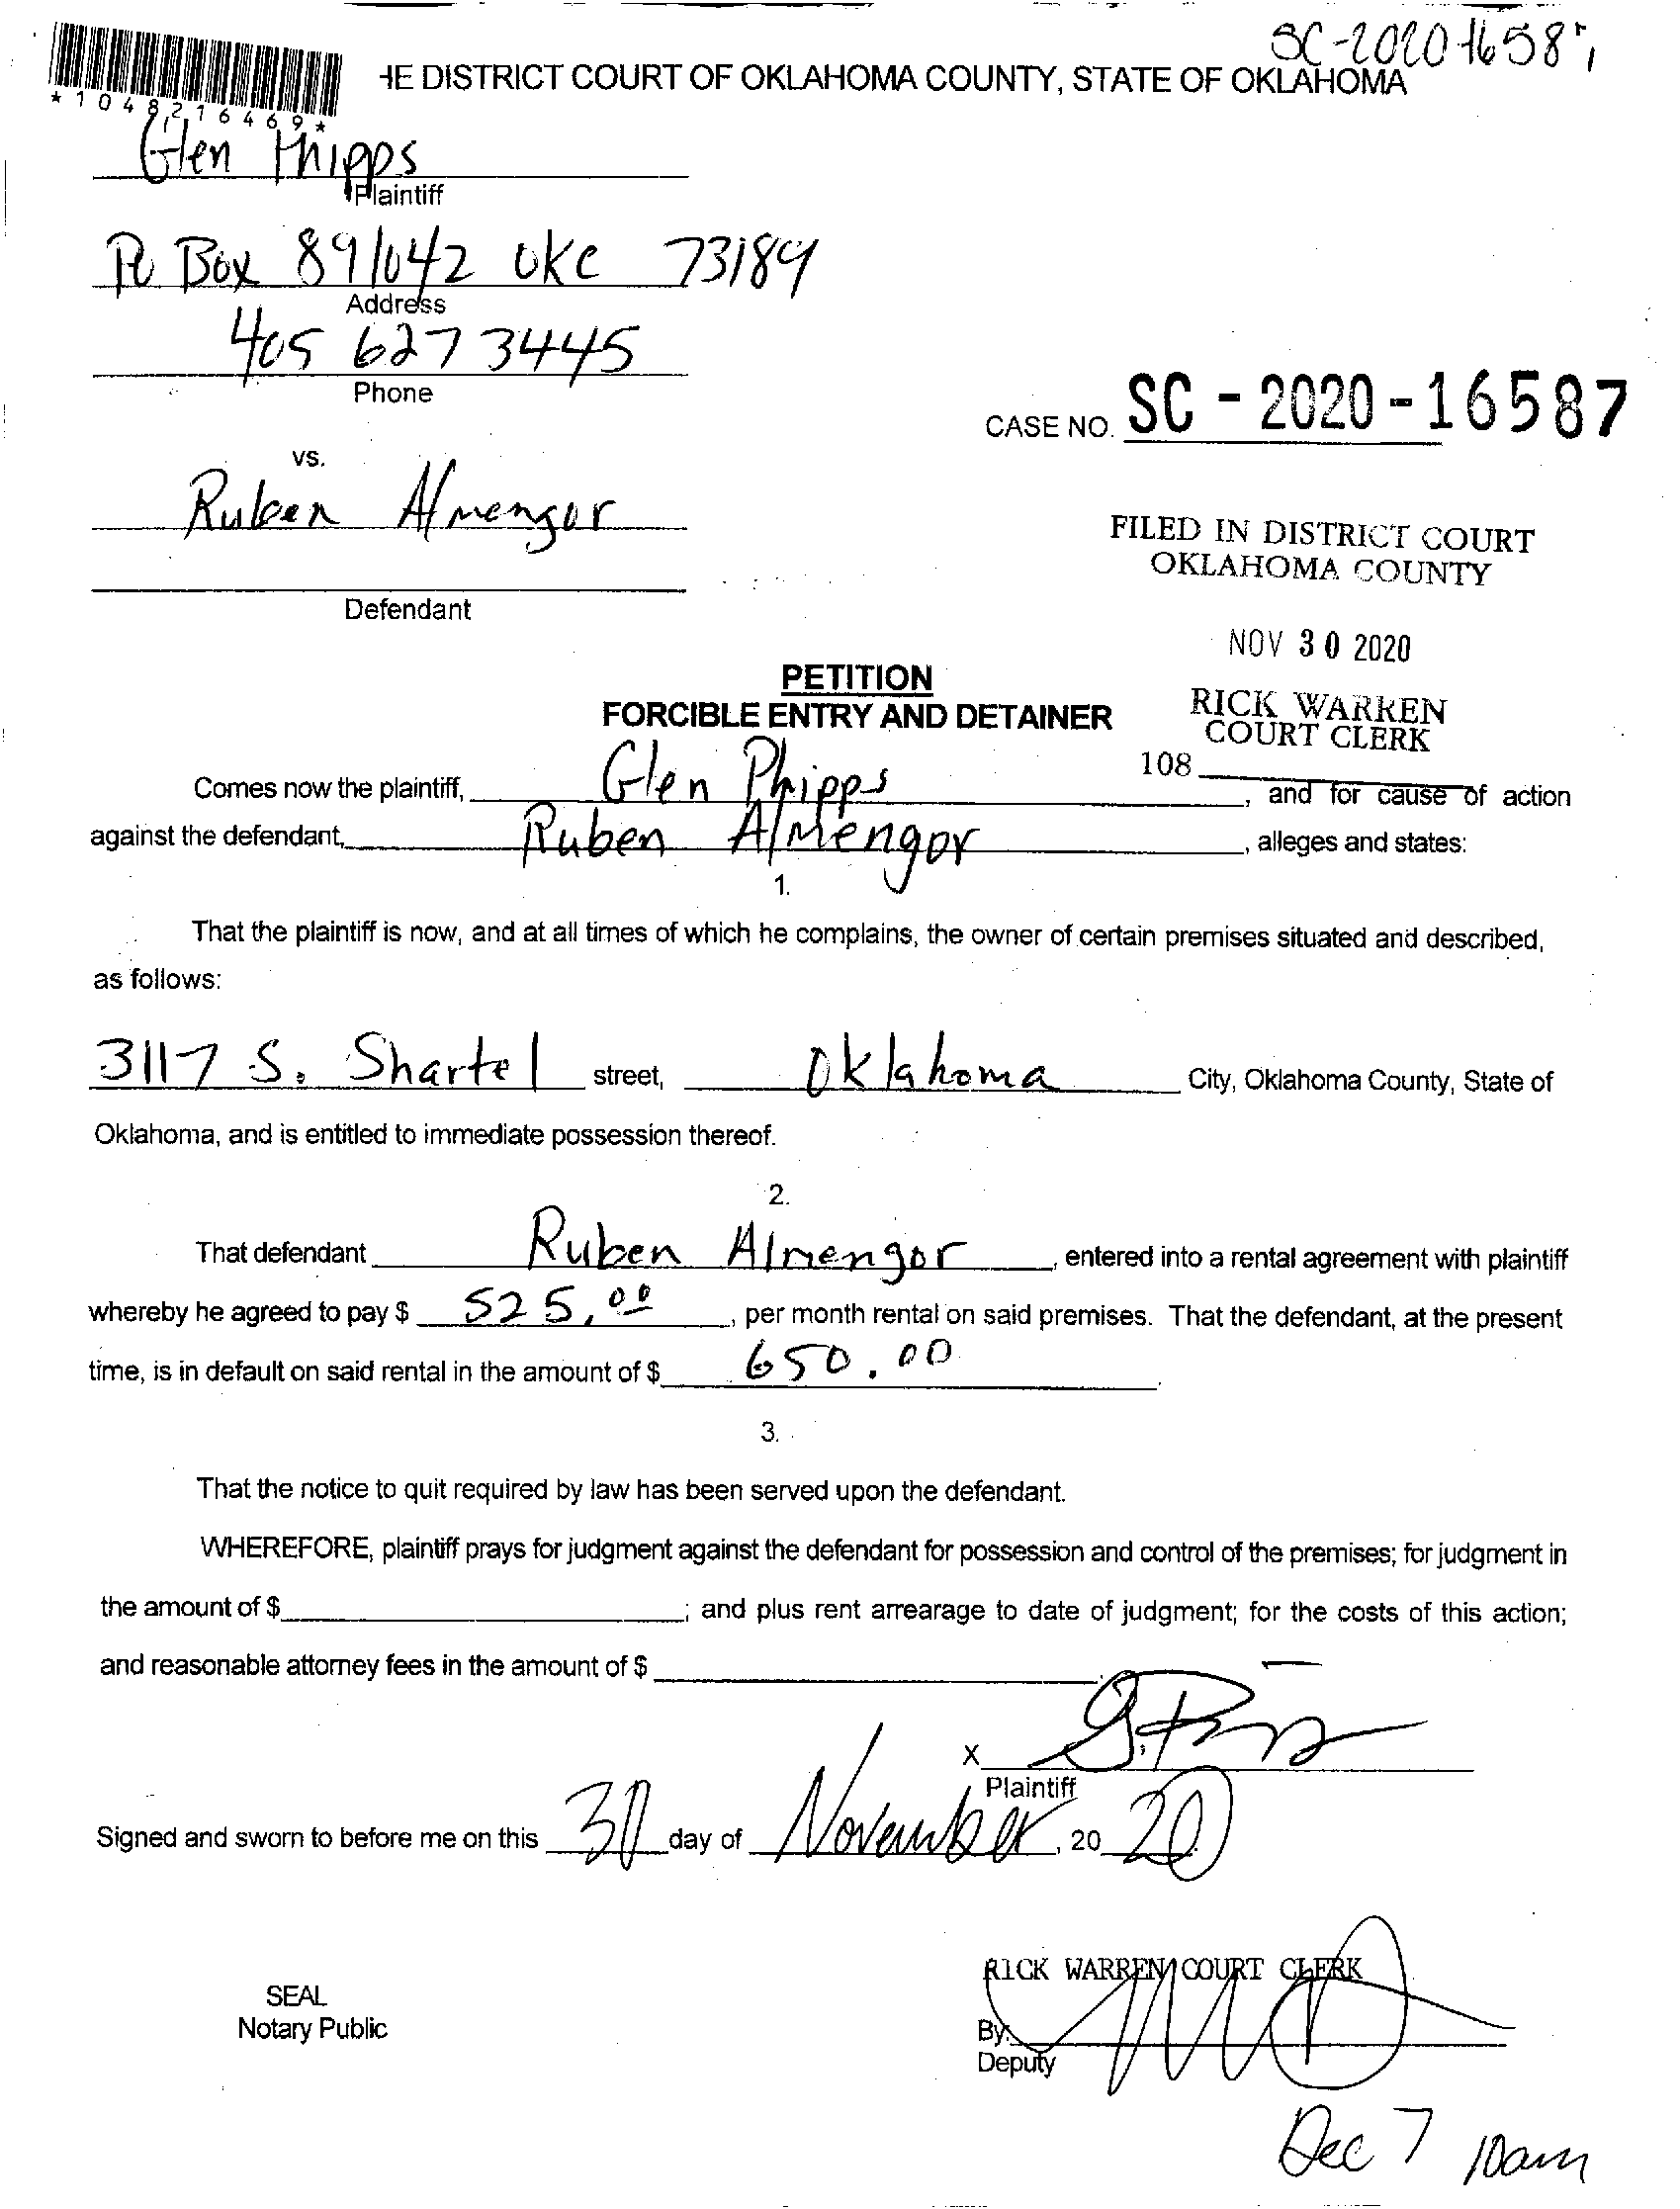 SC-2020-16587
*1048216469*
HE DISTRICT COURT OF OKLAHOMA COUNTY, STATE OF OKLAHOMA
Glen Phipps
Plaintiff
PO Box 891042 OKC 73189
Address
405 627 3445
Phone
CASE NO. SC - 2020 - 16587
vs.
Ruben Almengor
Defendant
FILED IN DISTRICT COURT
OKLAHOMA COUNTY
NOV 30 2020
RICK WARREN
COURT CLERK
108
PETITION
FORCIBLE ENTRY AND DETAINER
Comes now the plaintiff, Glen Phipps, and for cause of action
against the defendant, Ruben Almengor, alleges and states:
1.
That the plaintiff is now, and at all times of which he complains, the owner of certain premises situated and described,
as follows:
3117 S. Shartel street, Oklahoma City, Oklahoma County, State of
Oklahoma, and is entitled to immediate possession thereof.
2.
That defendant Ruben Almengor, entered into a rental agreement with plaintiff
whereby he agreed to pay $ 525.00, per month rental on said premises. That the defendant, at the present
time, is in default on said rental in the amount of $ 650.00.
3.
That the notice to quit required by law has been served upon the defendant.
WHEREFORE, plaintiff prays for judgment against the defendant for possession and control of the premises; for judgment in
the amount of $ ; and plus rent arrearage to date of judgment; for the costs of this action;
and reasonable attorney fees in the amount of $ .
X
Plaintiff
Signed and sworn to before me on this 30 day of November, 20 20.
SEAL
Notary Public
RICK WARREN COURT CLERK
By:
Deputy
Dec 7 10am